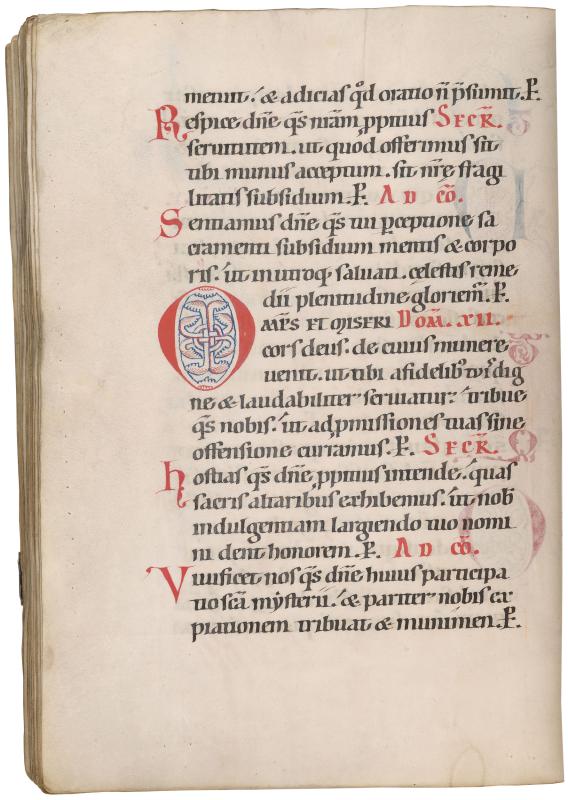 metuit. & adicias qd oratio n p̄sumit. P.
Respice dn̄e q̄s nr̄am ppitius SECR̄.
seruitutem. ut quod offerimus sit
tibi munus acceptum. sit nr̄e fragi
litatis subsidium. P. AD CŌ.
Sentiamus dn̄e q̄s tui perceptione sa
cramenti subsidium mentis & corpo
ris. ut in utroq; saluati. celestis reme
dii plenitudine gloriem̄. P.
OMP̄S ET MISERI DOM̄. XII.
cors deus. de cuius munere
uenit. ut tibi a fidelib; tuis dig
ne & laudabiliter seruiatur. tribue
q̄s nobis. ut ad pmissiones tuas sine
offensione curramus. P. SECR̄.
Hostias q̄s dn̄e ppitius intende. quas
sacris altaribus exhibemus. ut nob̄
indulgentiam largiendo tuo nomi
ni dent honorem. P. AD CŌ.
Viuificet nos q̄s dn̄e huius participa
tio sc̄a mysterii. & pariter nobis ex
piationem tribuat & munimen. P.